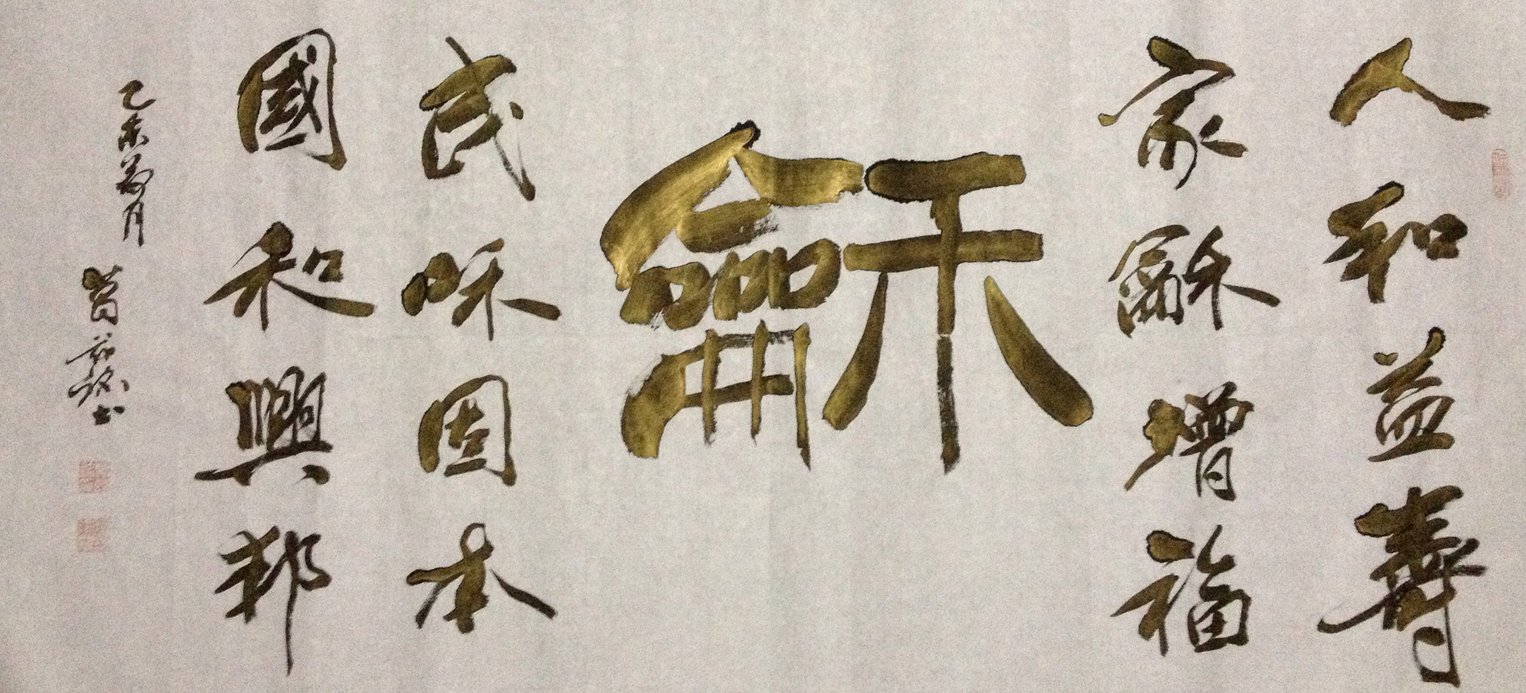 人和益壽
家龢增福
龢
民咊固本
國和興邦
乙未菊月
葛 書